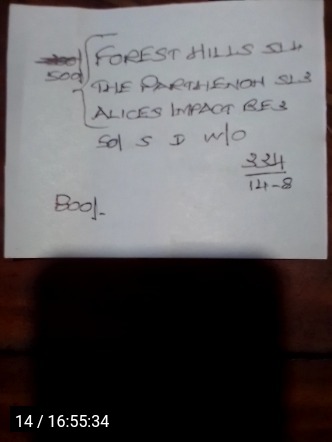 500/ FOREST HILLS SL4
THE PARTHENON SL3
ALICES IMPACT RE3
50/ S D W/O
334
14-8
800/-
14 / 16:55:34